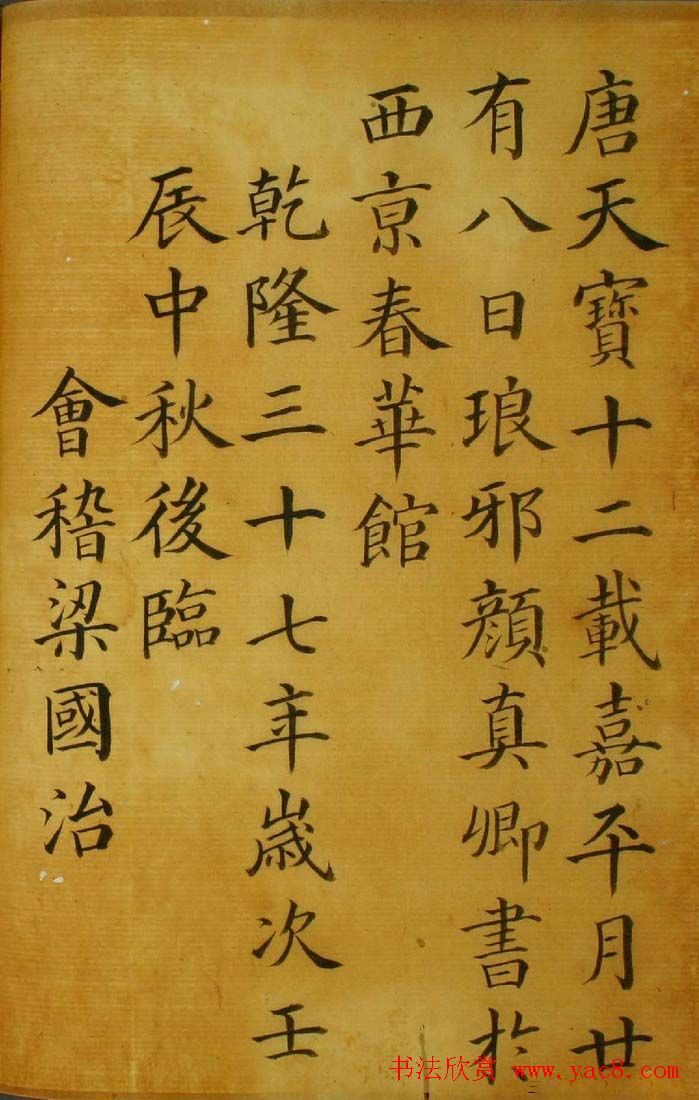 唐天寶十二載嘉平月廿
有八日琅邪顔真卿書於
西亰春華館
乾隆三十七年歳次壬
辰中秋後臨
會稽梁國治
书法欣赏 www.yac8.com